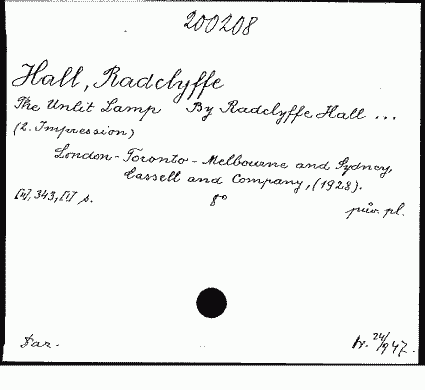 200208
Hall, Radclyffe
The Unlit Lamp By Radclyffe Hall ...
(2. Impression)
London - Toronto - Melbourne and Sydney,
Cassell and Company, (1928).
[4], 343, [1] s. 8°
pův. pl.
Dar. tr. 24/947.